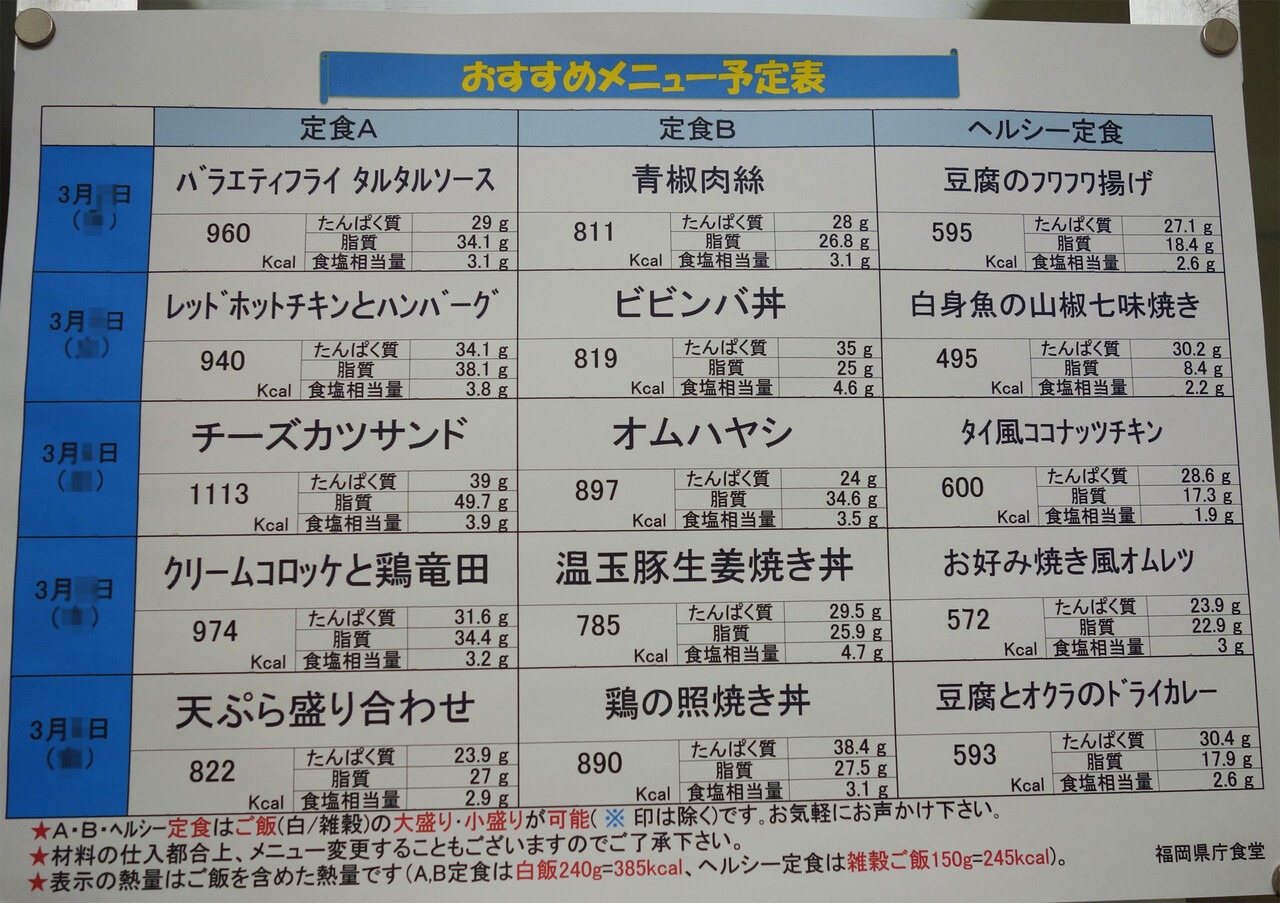 おすすめメニュー予定表
定食A 定食B ヘルシー定食
3月 日
バラエティフライ タルタルソース
960 Kcal
たんぱく質 29 g
脂質 34.1 g
食塩相当量 3.1 g
青椒肉絲
811 Kcal
たんぱく質 28 g
脂質 26.8 g
食塩相当量 3.1 g
豆腐のフワフワ揚げ
595 Kcal
たんぱく質 27.1 g
脂質 18.4 g
食塩相当量 2.6 g
3月 日
レッドホットチキンとハンバーグ
940 Kcal
たんぱく質 34.1 g
脂質 38.1 g
食塩相当量 3.8 g
ビビンバ丼
819 Kcal
たんぱく質 35 g
脂質 25 g
食塩相当量 4.6 g
白身魚の山椒七味焼き
495 Kcal
たんぱく質 30.2 g
脂質 8.4 g
食塩相当量 2.2 g
3月 日
チーズカツサンド
1113 Kcal
たんぱく質 39 g
脂質 49.7 g
食塩相当量 3.9 g
オムハヤシ
897 Kcal
たんぱく質 24 g
脂質 34.6 g
食塩相当量 3.5 g
タイ風ココナッツチキン
600 Kcal
たんぱく質 28.6 g
脂質 17.3 g
食塩相当量 1.9 g
3月 日
クリームコロッケと鶏竜田
974 Kcal
たんぱく質 31.6 g
脂質 34.4 g
食塩相当量 3.2 g
温玉豚生姜焼き丼
785 Kcal
たんぱく質 29.5 g
脂質 25.9 g
食塩相当量 4.7 g
お好み焼き風オムレツ
572 Kcal
たんぱく質 23.9 g
脂質 22.9 g
食塩相当量 3 g
3月 日
天ぷら盛り合わせ
822 Kcal
たんぱく質 23.9 g
脂質 27 g
食塩相当量 2.9 g
鶏の照焼き丼
890 Kcal
たんぱく質 38.4 g
脂質 27.5 g
食塩相当量 3.1 g
豆腐とオクラのドライカレー
593 Kcal
たんぱく質 30.4 g
脂質 17.9 g
食塩相当量 2.6 g
★A・B・ヘルシー定食はご飯(白/雑穀)の大盛り・小盛りが可能(※ 印は除く)です。お気軽にお声かけ下さい。
★材料の仕入都合上、メニュー変更することもございますのでご了承下さい。
★表示の熱量はご飯を含めた熱量です(A,B定食は白飯240g=385kcal、ヘルシー定食は雑穀ご飯150g=245kcal)。
福岡県庁食堂